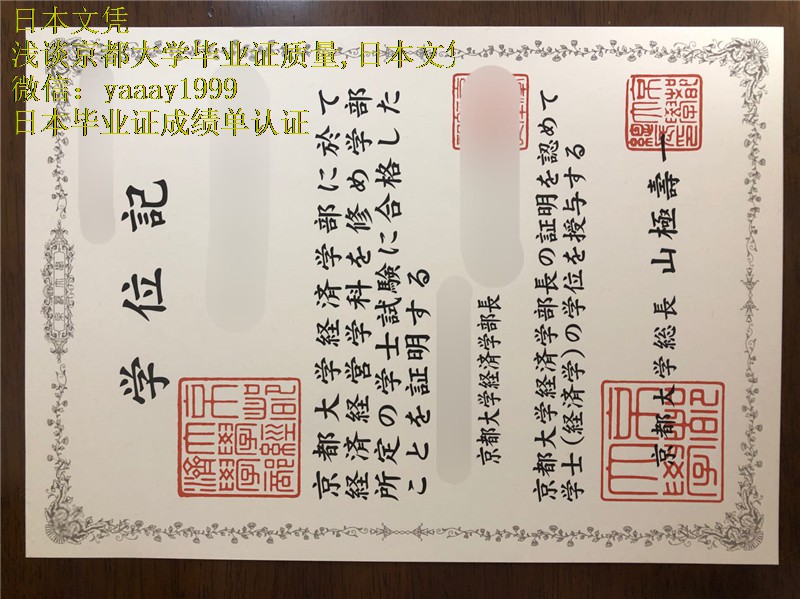 日本文凭
浅谈京都大学毕业证质量,日本文凭
微信：yaaay1999
日本毕业证成绩单认证
学位記
京都大学経済学部に於て
経済経営学科を修め学部
所定の学士試験に合格した
ことを証明する
京都大学経済学部長
京都大学経済学部長の証明を認めて
学士(経済学)の学位を授与する
京都大学総長 山極壽一